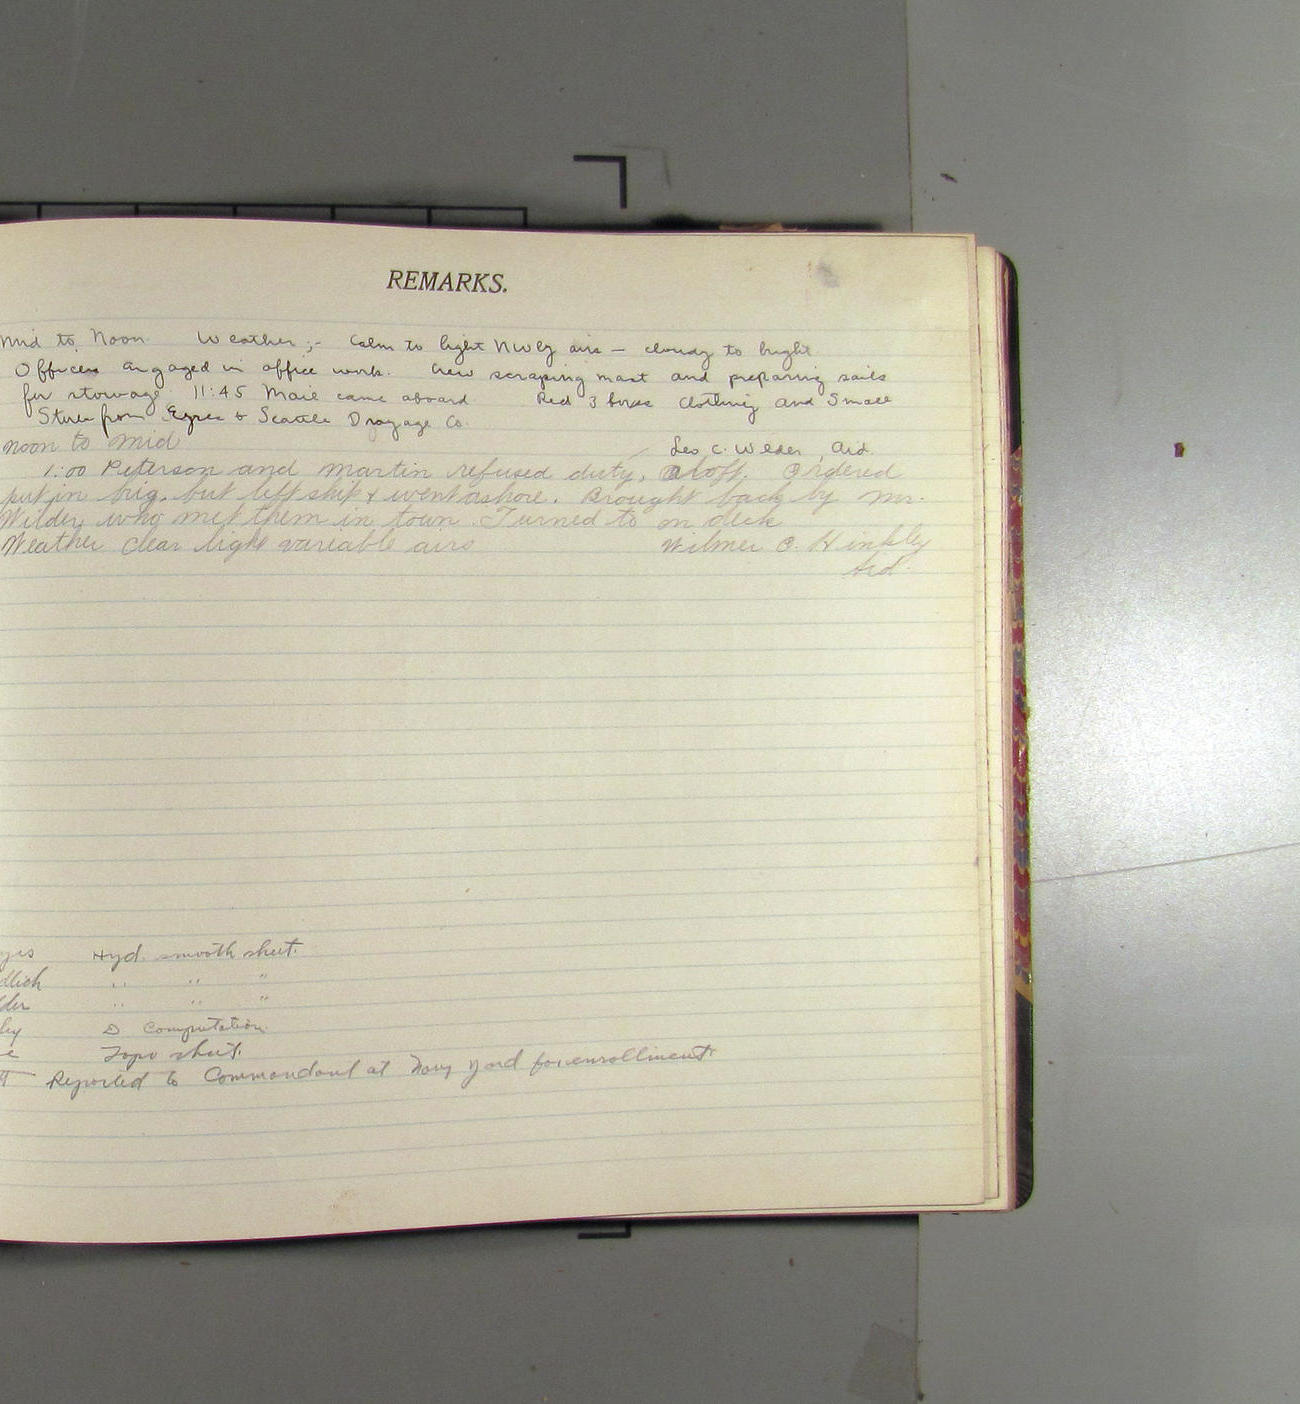 REMARKS.
Mid to Noon Weather ;- Calm to light NWly airs — cloudy to bright
Officers engaged in office work. Crew scraping mast and preparing sails
for stowage 11:45 Mail came aboard Recd 3 boxes Clothing and Small
Stores from & Seattle Drayage Co.
noon to mid Leo C. Wilder, Aid.
1:00 Peterson and Martin refused duty, aloft. Ordered
put in brig, but left ship & went ashore. Brought back by Mr.
Wilder, who met them in town. Turned to on deck
Weather clear light variable airs Wilmer O. Hinkley
Aid.
Hyd. smooth sheet.
" " "
" " "
Computation
Topo sheet.
Reported to Commandant at Navy Yard for enrollment